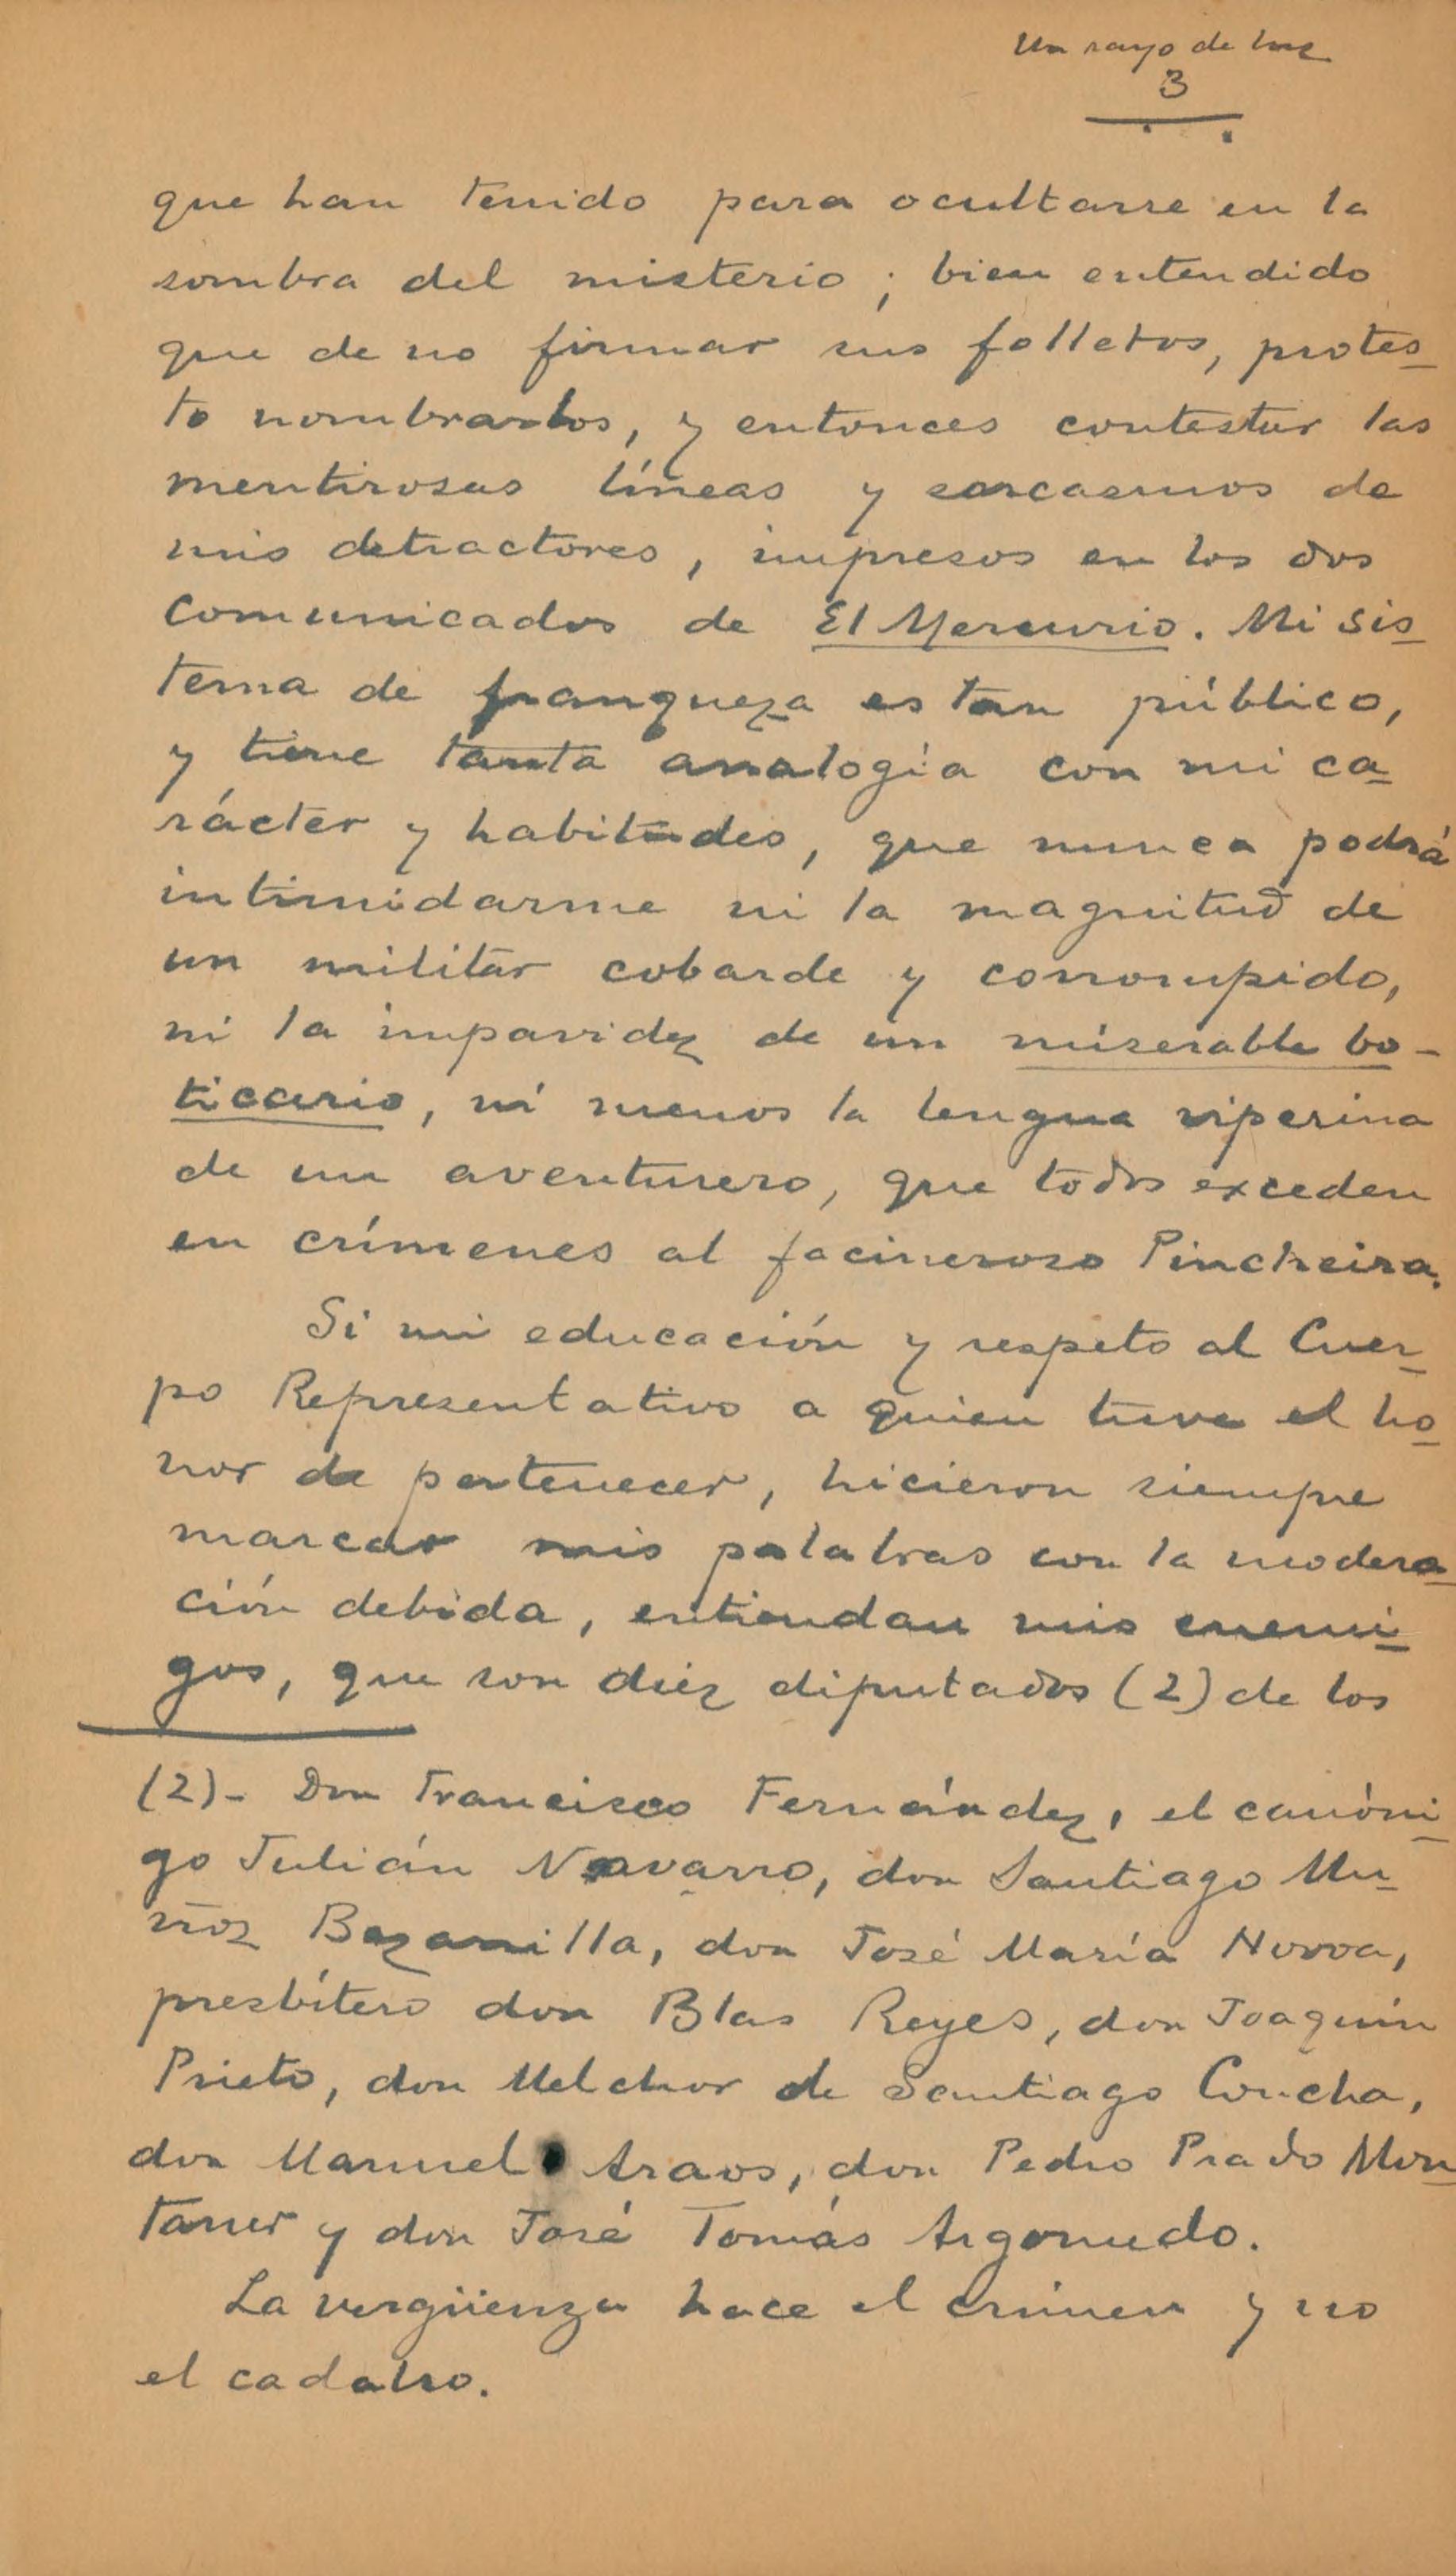 Un rayo de luz
3
que han tenido para ocultarse en la
sombra del misterio; bien entendido
que de no firmar sus folletos, protes-
to nombrarlos, y entonces contestar las
mentirosas líneas y sarcasmos de
mis detractores, impresos en los dos
comunicados de El Mercurio. Mi sis-
tema de franqueza es tan público,
y tiene tanta analogía con mi ca-
rácter y habitudes, que nunca podrá
intimidarme ni la magnitud de
un militar cobarde y corrompido,
ni la impavidez de un miserable bo-
ticario, ni menos la lengua viperina
de un aventurero, que todos exceden
en crímenes al facineroso Pincheira.
Si mi educación y respeto al Cuer-
po Representativo a quien tuve el ho-
nor de pertenecer, hicieron siempre
marcar mis palabras con la modera-
ción debida, entiendan mis enemi-
gos, que son diez diputados (2) de los
(2)- Don Francisco Fernández, el canóni-
go Julián Navarro, don Santiago Mu-
ñoz Bezanilla, don José María Novoa,
presbítero don Blas Reyes, don Joaquín
Prieto, don Melchor de Santiago Concha,
don Manuel Araos, don Pedro Prado Mon-
taner y don José Tomás Argomedo.
La vergüenza hace el crimen y no
el cadalso.